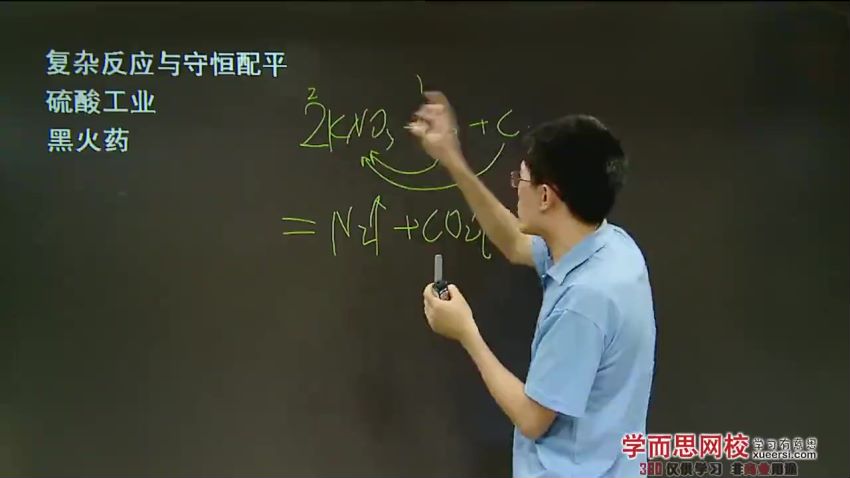 复杂反应与守恒配平
硫酸工业
黑火药
2
2KNO₃ + C
= N₂↑ + CO₂↑
学而思网校 学习有意思
xueersi.com
360 仅供学习 非商业用途